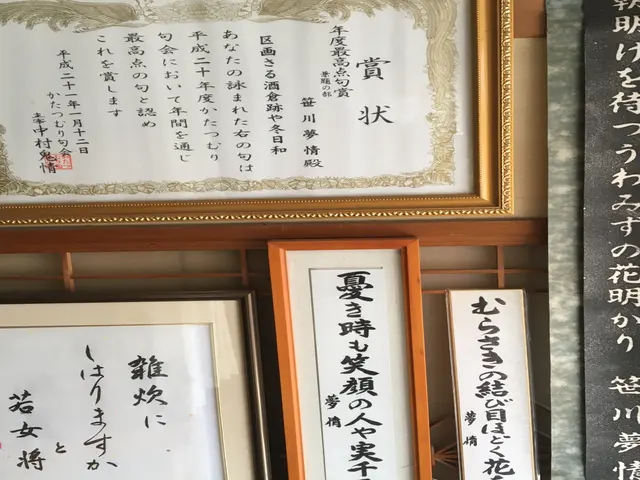 賞状
年度最高点句賞
兼題の部
笹川夢情殿
区画さる酒倉跡や冬日和
あなたの詠まれた右の句は
平成二十年度かたつむり
句会において年間を通じ
最高点の句と認め
これを賞します
平成二十一年一月十二日
かたつむり句会
主宰中村鬼情
朝明けを待つうわみずの花明かり 笹川夢情
むらさきの結び目ほどく花
夢情
憂き時も笑顔の人や実千
夢情
雑炊に
しはりますか
と
若女将